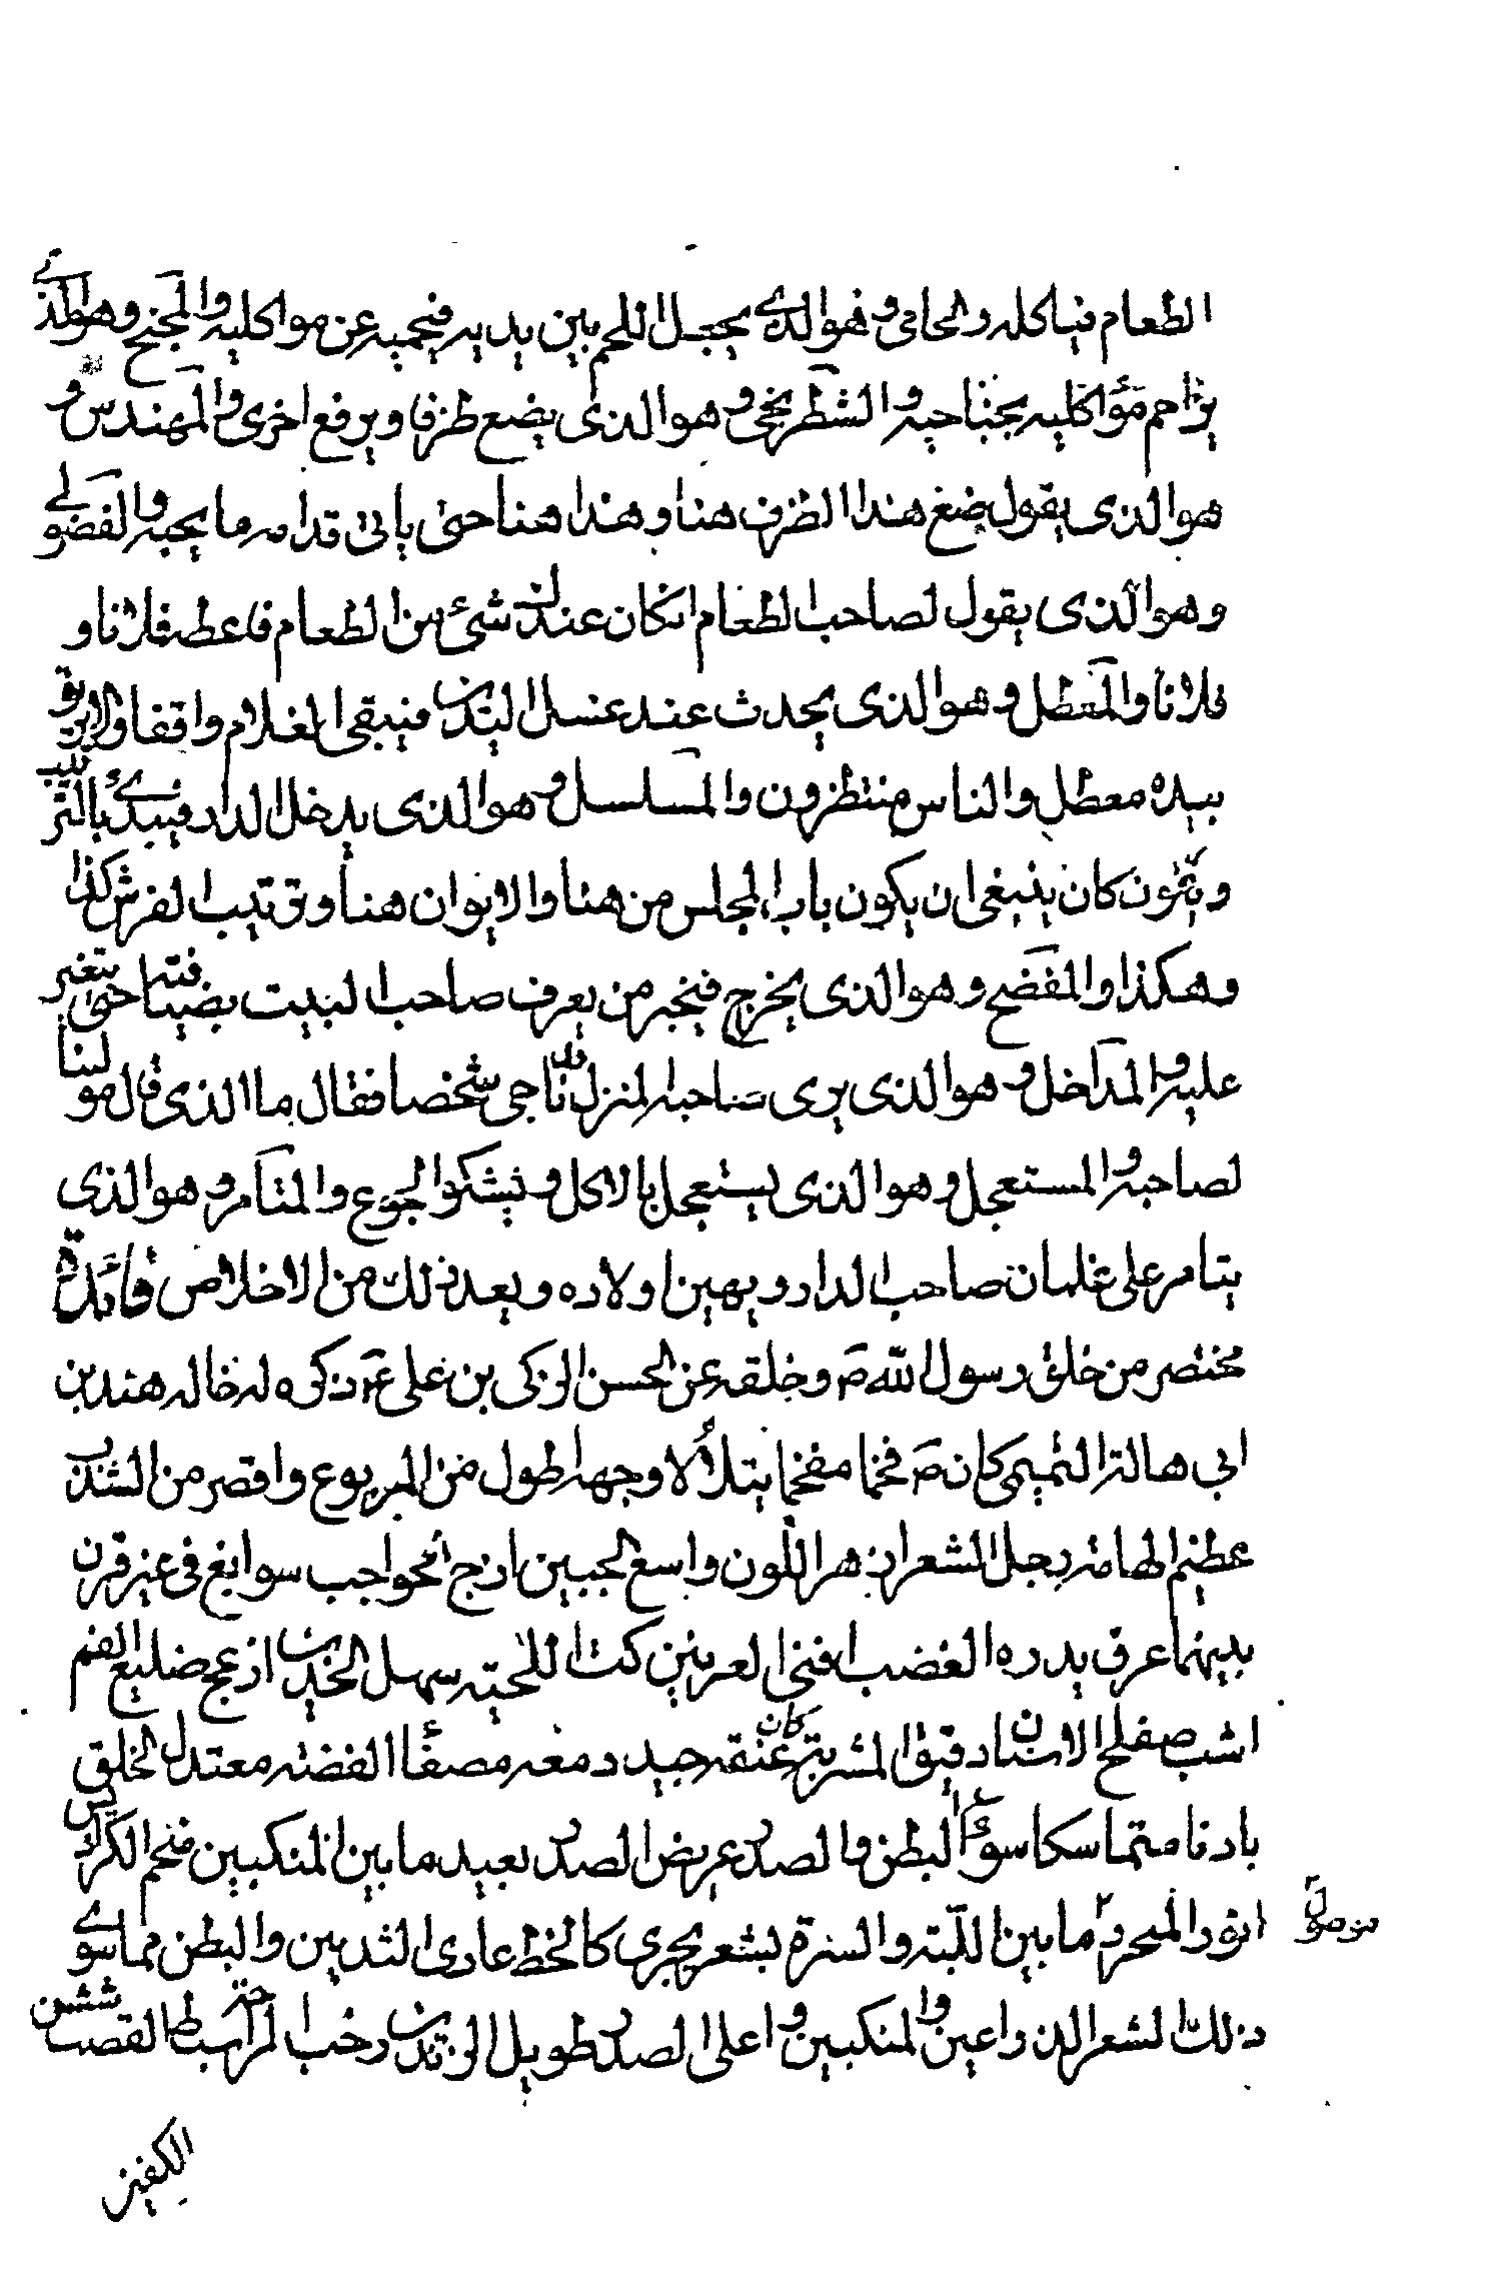 الطعام فياكله والحامى وهو الذى يجعل اللحم بين يديه فيحميه عن مواكليه والمجنح وهو الذى
يزاحم مؤاكليه بجناحيه والشطرنجى وهو الذى يضع طرفا ويرفع اخرى والمهندس و
هو الذى يقول ضع هذا الظرف هنا وهذا هنا حتى ياتى قدامه ما يحبه والفضولى
وهو الذى يقول لصاحب الطعام انكان عندك شئ من الطعام فاعط فلانا و
فلانا والمعطل وهو الذى يحدث عند غسل اليدين فيبقى الغلام واقفا والابريق
بيده معطل والناس منتظرون والمسلسل وهو الذى يدخل الدار فيبدئ بالترتيب
ويقول كان ينبغى ان يكون باب المجلس من هنا والايوان هنا وترتيب الفرش كذا
وهكذا والمفضح وهو الذى يخرج فيخبر من يعرف صاحب البيت بضيافته حتى يتغير
عليه والمداخل وهو الذى يرى صاحب المنزل قد ناجى شخصا فقال ما الذى قال مولينا
لصاحبه والمستعجل وهو الذى يستعجل بالاكل ويشكو الجوع والمتامر وهو الذى
يتامر على غلمان صاحب الدار ويهين اولاده وبعد ذلك من الاخلاص فائدة
مختصر من خلق رسول الله ص وخلقه عن الحسن الزكى بن على ع ذكره له خاله هند بن
ابى هالة التميمى كان ص فخما مفخما يتلألأ وجهه اطول من المربوع واقصر من المشذب
عظيم الهامة رجل الشعر ازهر اللون واسع الجبين ازج الحواجب سوابغ فى غير قرن
بينهما عرق يدره الغضب اقنى العرنين كث اللحية سهل الخدين ادعج ضليع الفم
اشنب مفلج الاسنان دقيق المشربة كان عنقه جيد دمعه مصفا الفضة معتدل الخلق
بادنا متماسكا سواء البطن والصدر عريض الصدر بعيد ما بين المنكبين ضخم الكراديس
انور المتجرد ما بين اللبة والسرة بشعر يجرى كالخط عارى الثديين والبطن مما سوى
موصول
ذلك اشعر الذراعين والمنكبين واعلى الصدر طويل الزندين رحب الراحة سبط القصب شثن
الكفين